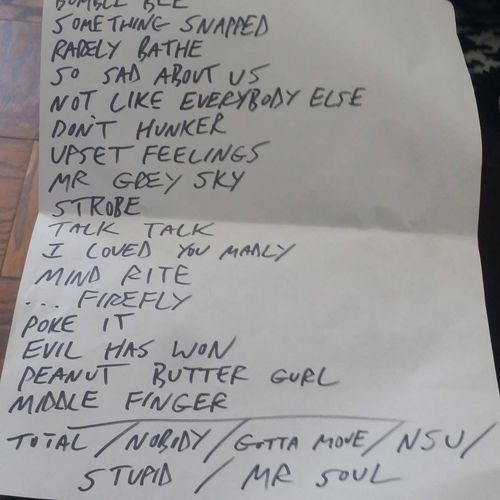 BUMBLE BEE
SOMETHING SNAPPED
RARELY BATHE
SO SAD ABOUT US
NOT LIKE EVERYBODY ELSE
DON'T HUNKER
UPSET FEELINGS
MR GREY SKY
STROBE
TALK TALK
I LOVED YOU MADLY
MIND RITE
... FIREFLY
POKE IT
EVIL HAS WON
PEANUT BUTTER GURL
MIDDLE FINGER
TOTAL / NOBODY / GOTTA MOVE / NSU /
STUPID / MR SOUL